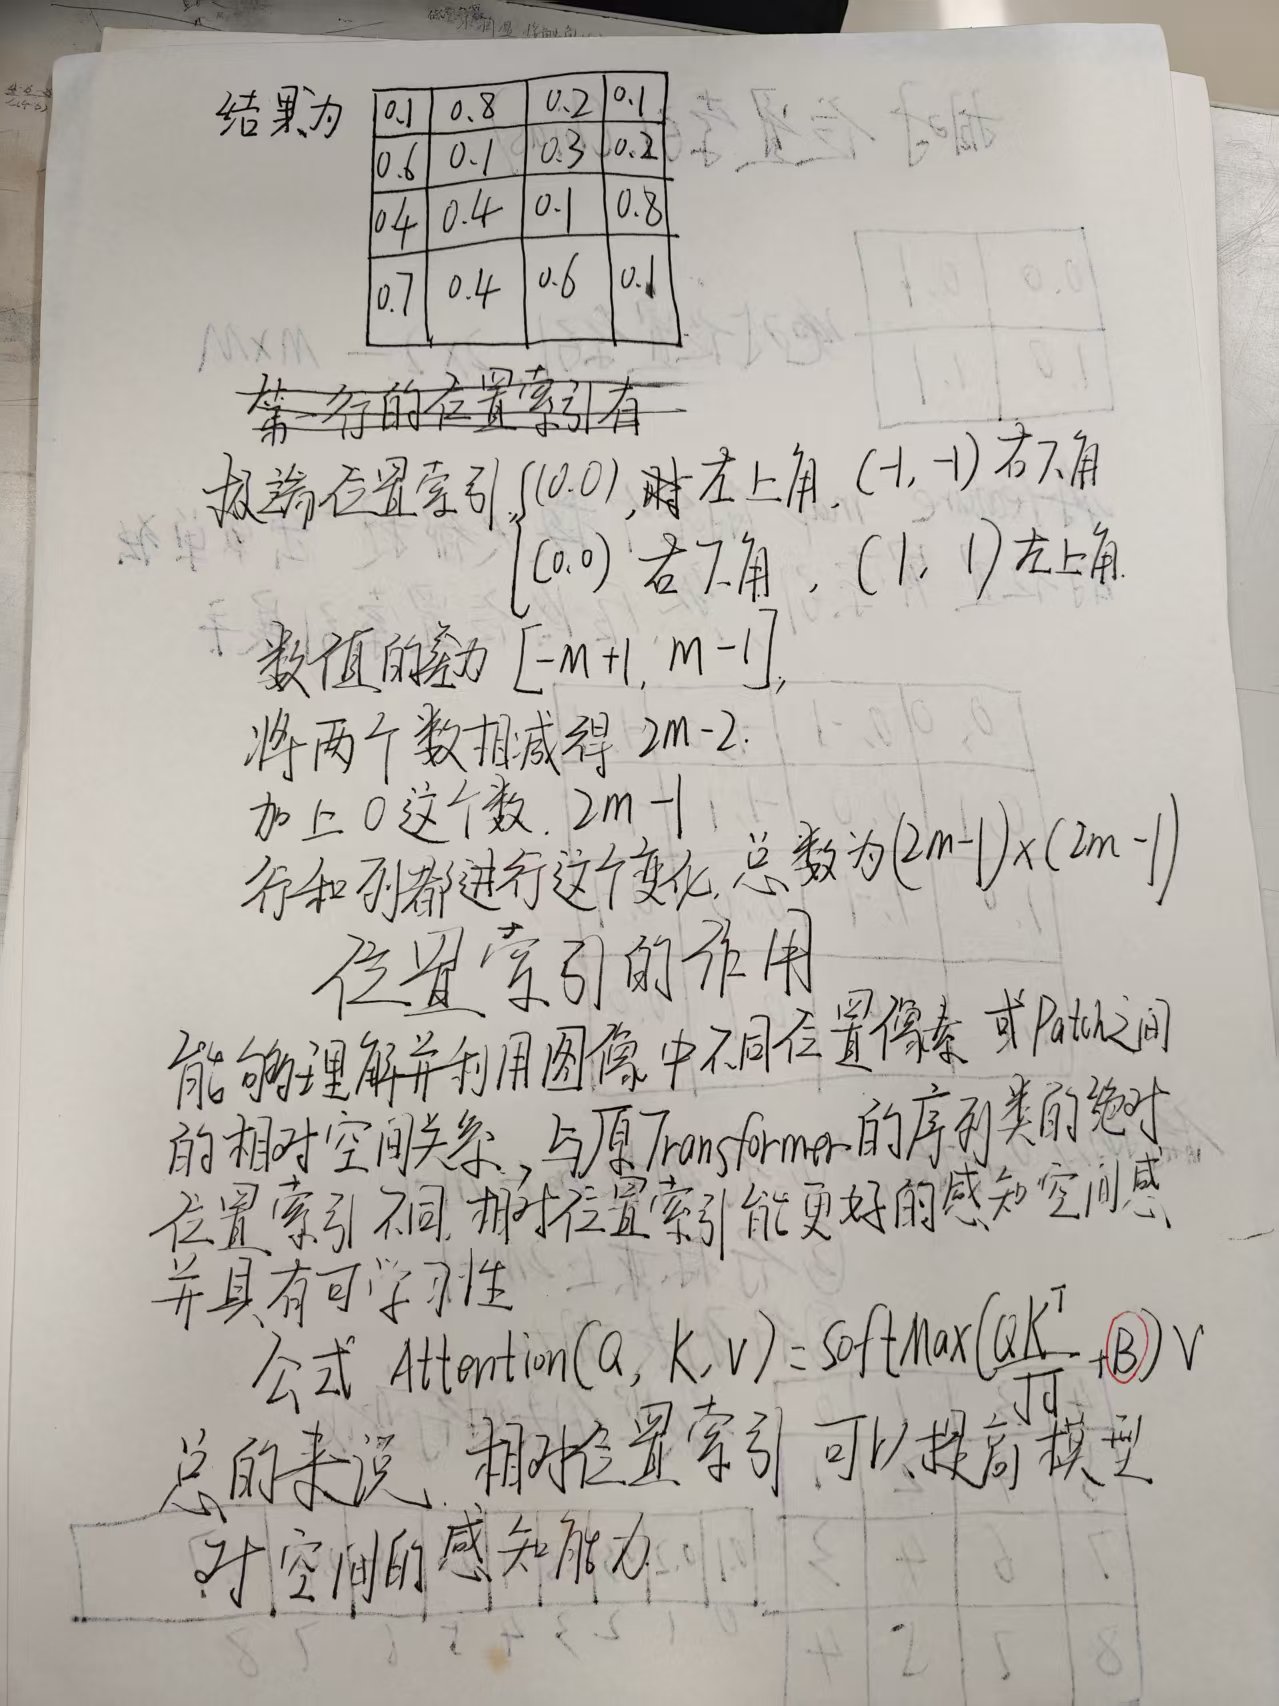 结果为
0.1 0.8 0.2 0.1
0.6 0.1 0.3 0.2
0.4 0.4 0.1 0.8
0.7 0.4 0.6 0.1
第一行的位置索引有
极端位置索引, (0.0), 时左上角, (-1, -1) 右下角
(0.0) 右下角, (1, 1) 左上角.
数值的差为 [-m+1, m-1],
将两个数相减得 2m-2.
加上0这个数. 2m-1
行和列都进行这个变化. 总数为(2m-1)×(2m-1)
位置索引的作用
能够理解并利用图像中不同位置像素 或Patch之间
的相对空间关系, 与原Transformer的序列类的绝对
位置索引不同, 相对位置索引能更好的感知空间感
并具有可学习性
公式 Attention(Q, K, V) = SoftMax(QK^T/√d + B) V
总的来说, 相对位置索引 可以提高模型
对空间的感知能力.